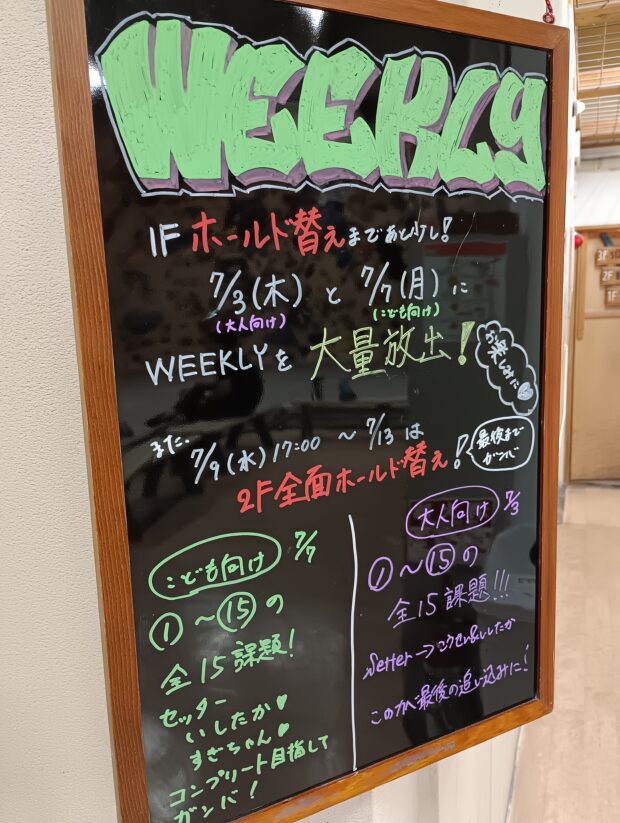 WEEKLY
1F ホールド替えまであと少し!
7/3(木) と 7/7(月) に
(大人向け) (こども向け)
WEEKLYを 大量放出!
お楽しみに♥
また、 7/9(水) 17:00 ~ 7/13 は
2F全面ホールド替え!
最後まで
ガンバ
こども向け 7/7
①~⑮の
全15課題!
セッター
いしたか♥
すぎちゃん♥
コンプリート目指して
ガンバ!
大人向け 7/3
①~⑮の
全15課題!!!
Setter→こうせい&いしたか
最後の追い込みに!
3F
2F
1F